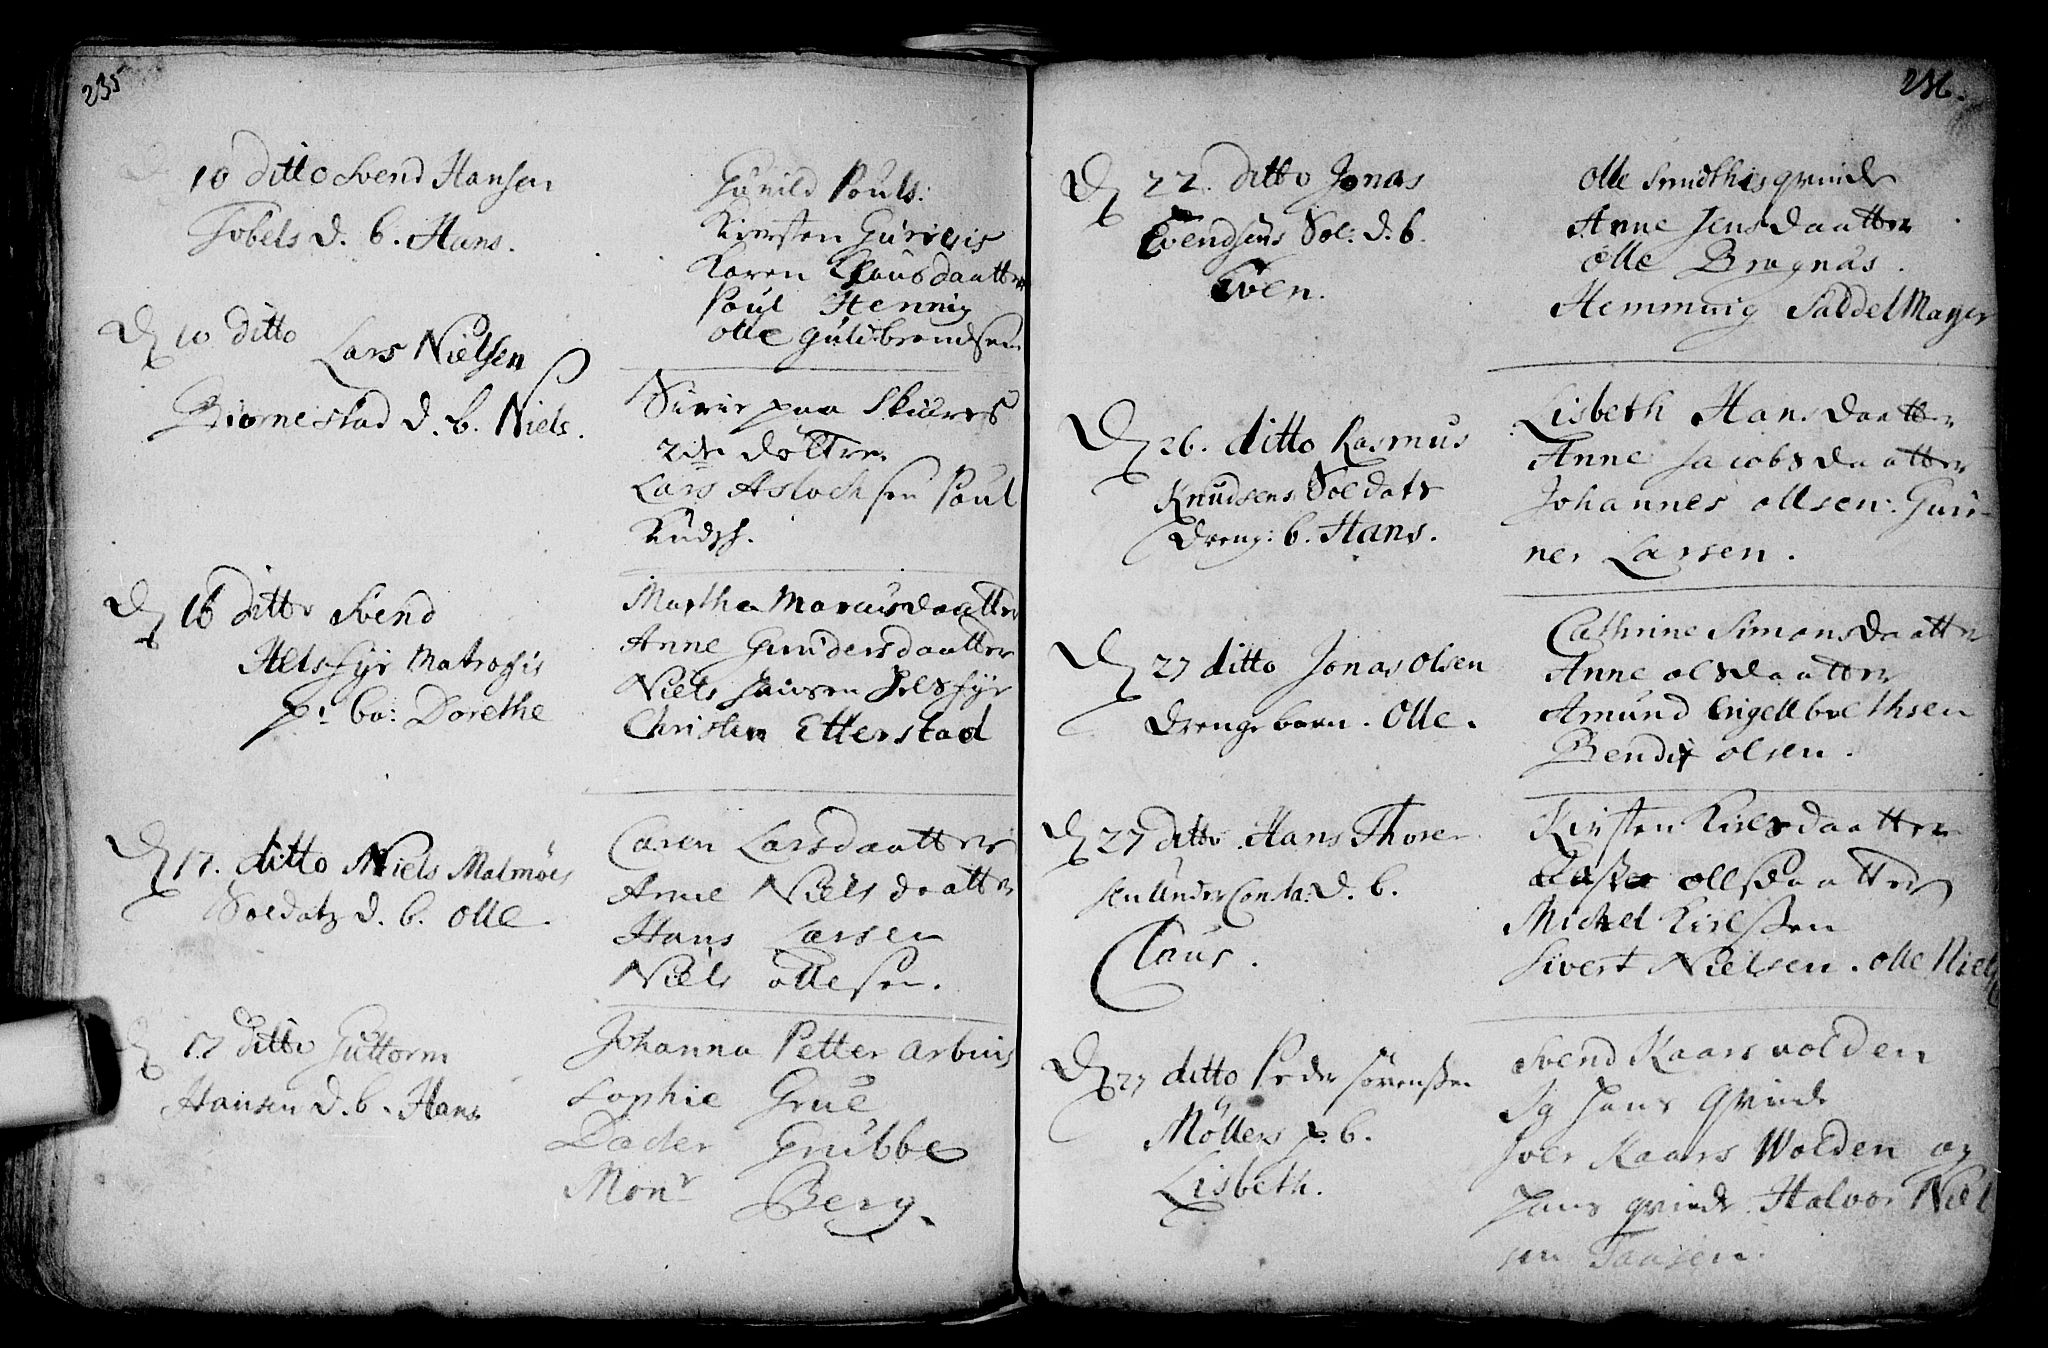 235
10 Ditto Svend Hansen
Tobels d. b. Hans.
Gunild Pouls:
Kiersten
Karen Clausdaatter
Poul Hennig
Olle Guldbrandsen
D 10 Ditto
Lars Nielsen
Biørnestad d. b. Niels.
Sirie paa
2de døttre
Lars Aslachsen Poul
D 16 Ditto Svend
Helsfyr Matrosis
p: ba: Dorethe
Marthe Marcusdaatter
Anne Gundersdaatter
Niels Jensen Helsfyr
Christen Etterstad
D 17. ditto Niels Malmøes
Soldatz d. b. Olle.
Caren Larsdaatter
Anne Nielsdaatter
Hans Larsen
Niels Ollesen.
D 17 Ditto Guttorm
Hansen d. b. Hans
Johanna Petter Arbins
Sophie Grue
Grubbe
Monr Berg.
236.
D 22. Ditto Jonas
Evendsens Sol: d. b.
Even.
Olle Smidthis qvinde
Anne Jensdaatter
Olle Bragnæs.
Hemming SaddelMager
D 26. ditto Rasmus
Knudsens Soldatz
Dreng: b. Hans.
Lisbeth Hansdaatter
Anne Jacobsdaatter
Johannes Ollsen: Gun-
ner Larsen.
D 27 ditto Jonas Olsen
Drengebarn. Olle.
Cathrine Simonsdaatter
Anne Olsdaatter
Amund Engelbrethsen
Bendix Olsen.
D 27 ditto Hans Thore
sen Under Consta: d. b.
Claus.
Kirsten Nielsdaatter
Ollsdaatter
Michel Nielssen
Sivert Nielsen. Olle Niels
D 27 ditto Peder Sørenssen
Møllers p. b.
Lisbeth.
Svend Kaarsvolden
Og Hans Qvinde
Iver Kaars Wolden og
Hans qvinde Halvor Niel
sen Taasen.